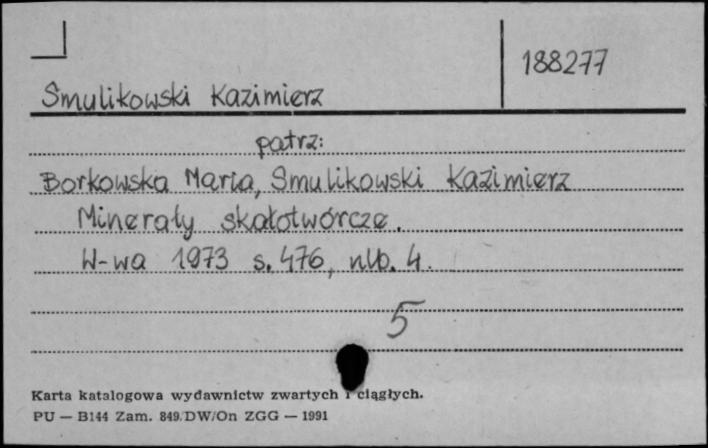 188277
Smulikowski Kazimierz
patrz:
Borkowska Maria, Smulikowski Kazimierz
Minerały skałotwórcze.
W-wa 1973 s. 476, nlb. 4.
5
Karta katalogowa wydawnictw zwartych i ciągłych.
PU — B144 Zam. 849/DW/On ZGG — 1991